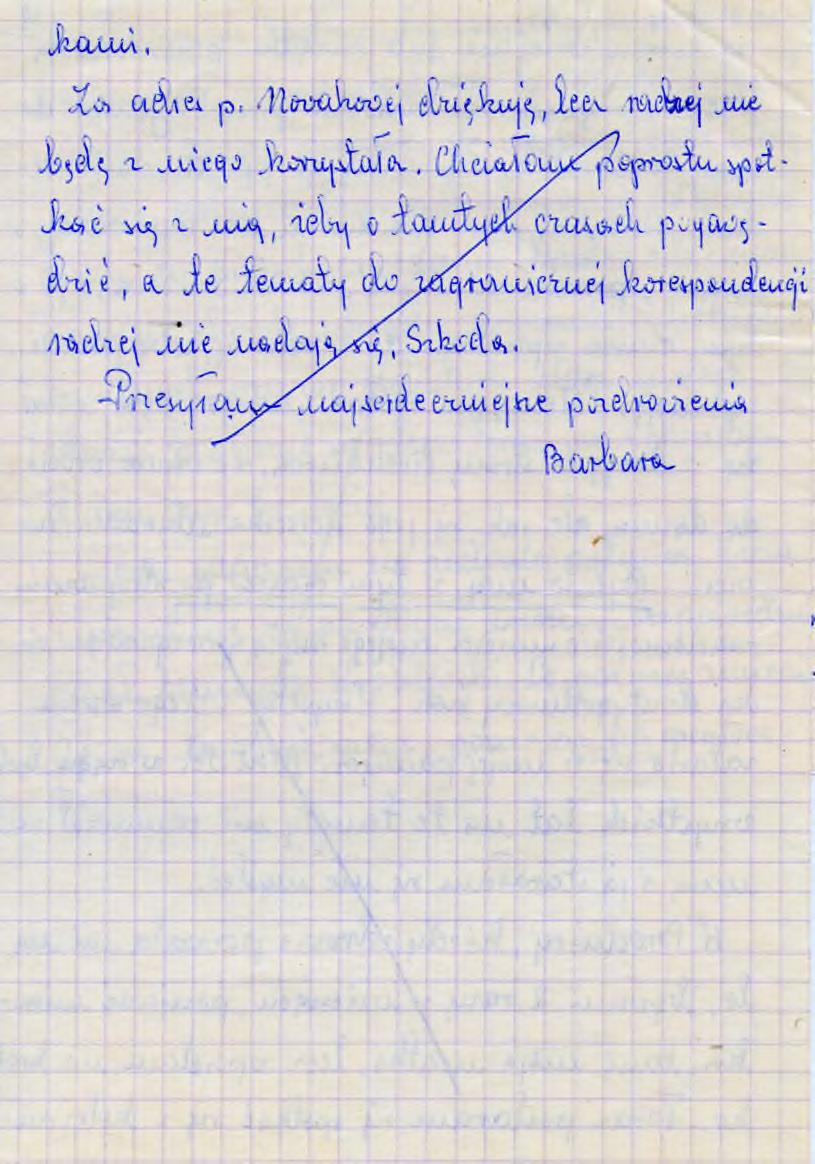 kami.
Za adres p. Novakovej dziękuję, lecz raczej nie
będę z niego korzystała. Chciałam poprostu spot-
kać się z nią, żeby o tamtych czasach pogawę-
dzić, a te tematy do zagranicznej korespondencji
raczej nie nadają się. Szkoda.
Przesyłam najserdeczniejsze pozdrowienia
Barbara